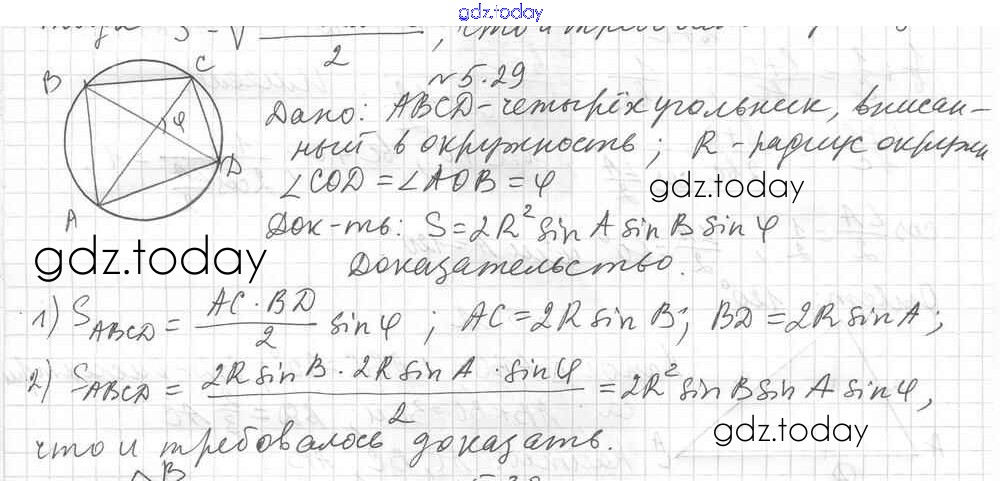 gdz.today
2
№5.29
B
C
φ
D
A
Дано: ABCD-четырёхугольник, вписан-
ный в окружность; R - радиус окружн
∠COD = ∠AOB = φ
gdz.today
Док-ть: S = 2R² sin A sin B sin φ
gdz.today
Доказательство.
1) S_ABCD = AC·BD/2 sin φ ; AC = 2R sin B; BD = 2R sin A;
2) S_ABCD = 2R sin B · 2R sin A · sin φ/2 = 2R² sin B sin A sin φ,
что и требовалось доказать.
gdz.today
B